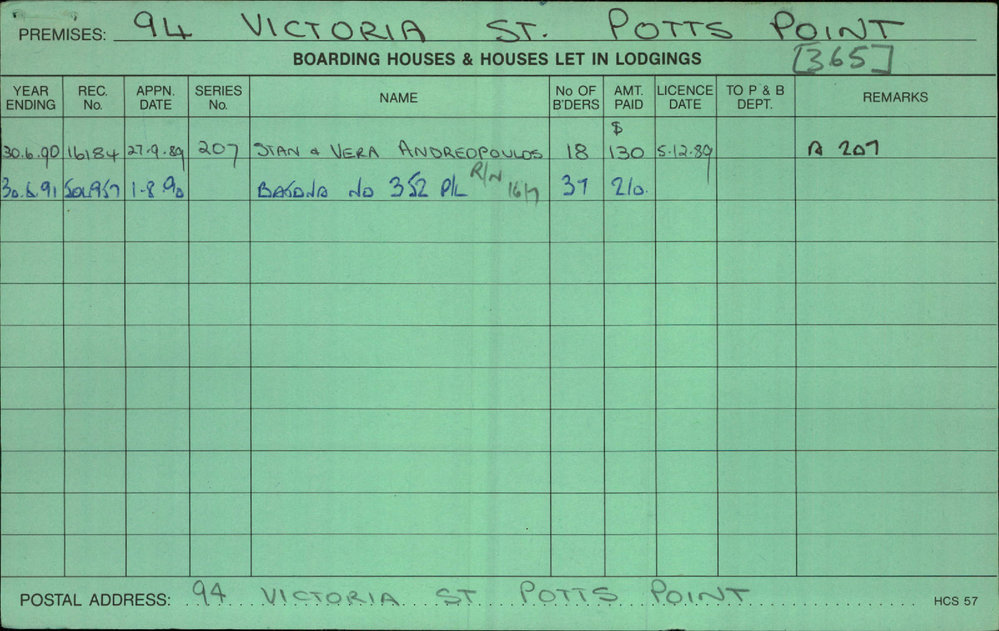 PREMISES: 94 VICTORIA ST. POTTS POINT
BOARDING HOUSES & HOUSES LET IN LODGINGS [365]
YEAR ENDING REC. No. APPN. DATE SERIES No. NAME No OF B'DERS AMT. PAID LICENCE DATE TO P & B DEPT. REMARKS
$
30.6.90 16184 27.9.89 207 STAN & VERA ANDREOPOULOS 18 130 5.12.89 A 207
30.6.91 1-8 90 No 352 P/L R/N 16/7 37 210.
POSTAL ADDRESS: 94 VICTORIA ST POTTS POINT HCS 57